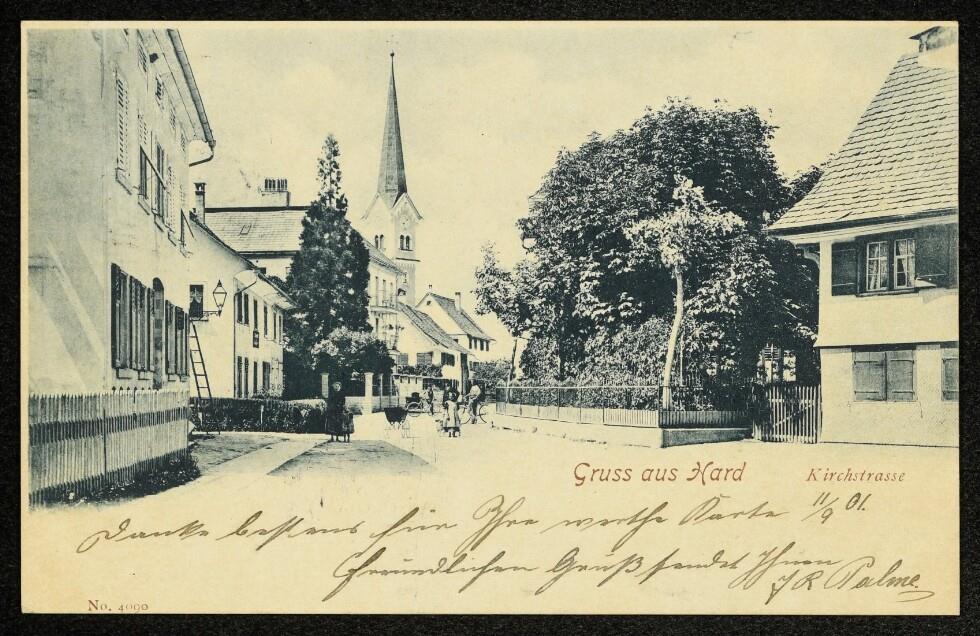 Gruss aus Hard
Kirchstrasse
11/9 01.
Danke bestens für Ihre werthe Karte
freundlichen Gruß sendet Ihnen
J R Palme.
No. 4090